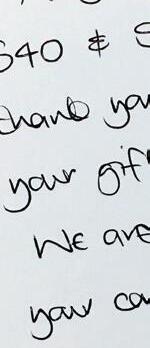 $40 & S
thank you
your gif
We are
your ca